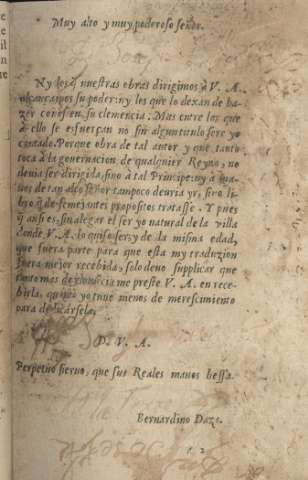 Muy alto y muy poderoso señor.
Ny los q̃ nuestras obras dirigimos à V. A.
alcançamos su poder: ny los que lo dexan de ha-
zer conoscen su clemencia. Mas entre los que
à ello se esfuerçan no sin algun turulo sere yo
contado. Porque obra de tal autor y que tanto
toca à la governacion de qualquier Reyno, no
devia ser dirigida, sino à tal Principe: ny à ma-
nos de tan alto señor tampoco devria yr, sino li-
bro, q̃ de semejantes propositos tratasse. Y pues
q̃ ansi es, sin alegar el ser yo natural de la villa
donde V. A. lo quiso ser, y de la misma edad,
que fuera parte para que esta my traduzion
fuera mejor recebida, solo devo supplicar que
tanto mas de clemencia me preste V. A. en rece-
birla, quanto yo tuve menos de merescimiento
para dedicársela.
D. V. A.
Perpetuo siervo, que sus Reales manos bessa.
Bernardino Daza.
2